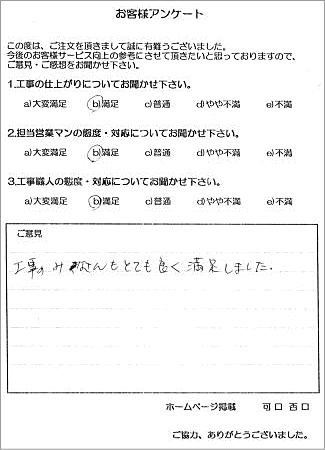 お客様アンケート
この度は、ご注文を頂きまして誠に有難うございました。
今後のお客様サービス向上の参考にさせて頂きたいと思っておりますので、
ご意見・ご感想をお聞かせ下さい。
1.工事の仕上がりについてお聞かせ下さい。
a)大変満足 b)満足 c)普通 d)やや不満 e)不満
2.担当営業マンの態度・対応についてお聞かせ下さい。
a)大変満足 b)満足 c)普通 d)やや不満 e)不満
3.工事職人の態度・対応についてお聞かせ下さい。
a)大変満足 b)満足 c)普通 d)やや不満 e)不満
ご意見
工事のみなさんもとても良く満足しました.
ホームページ掲載 可口 否口
ご協力、ありがとうございました。